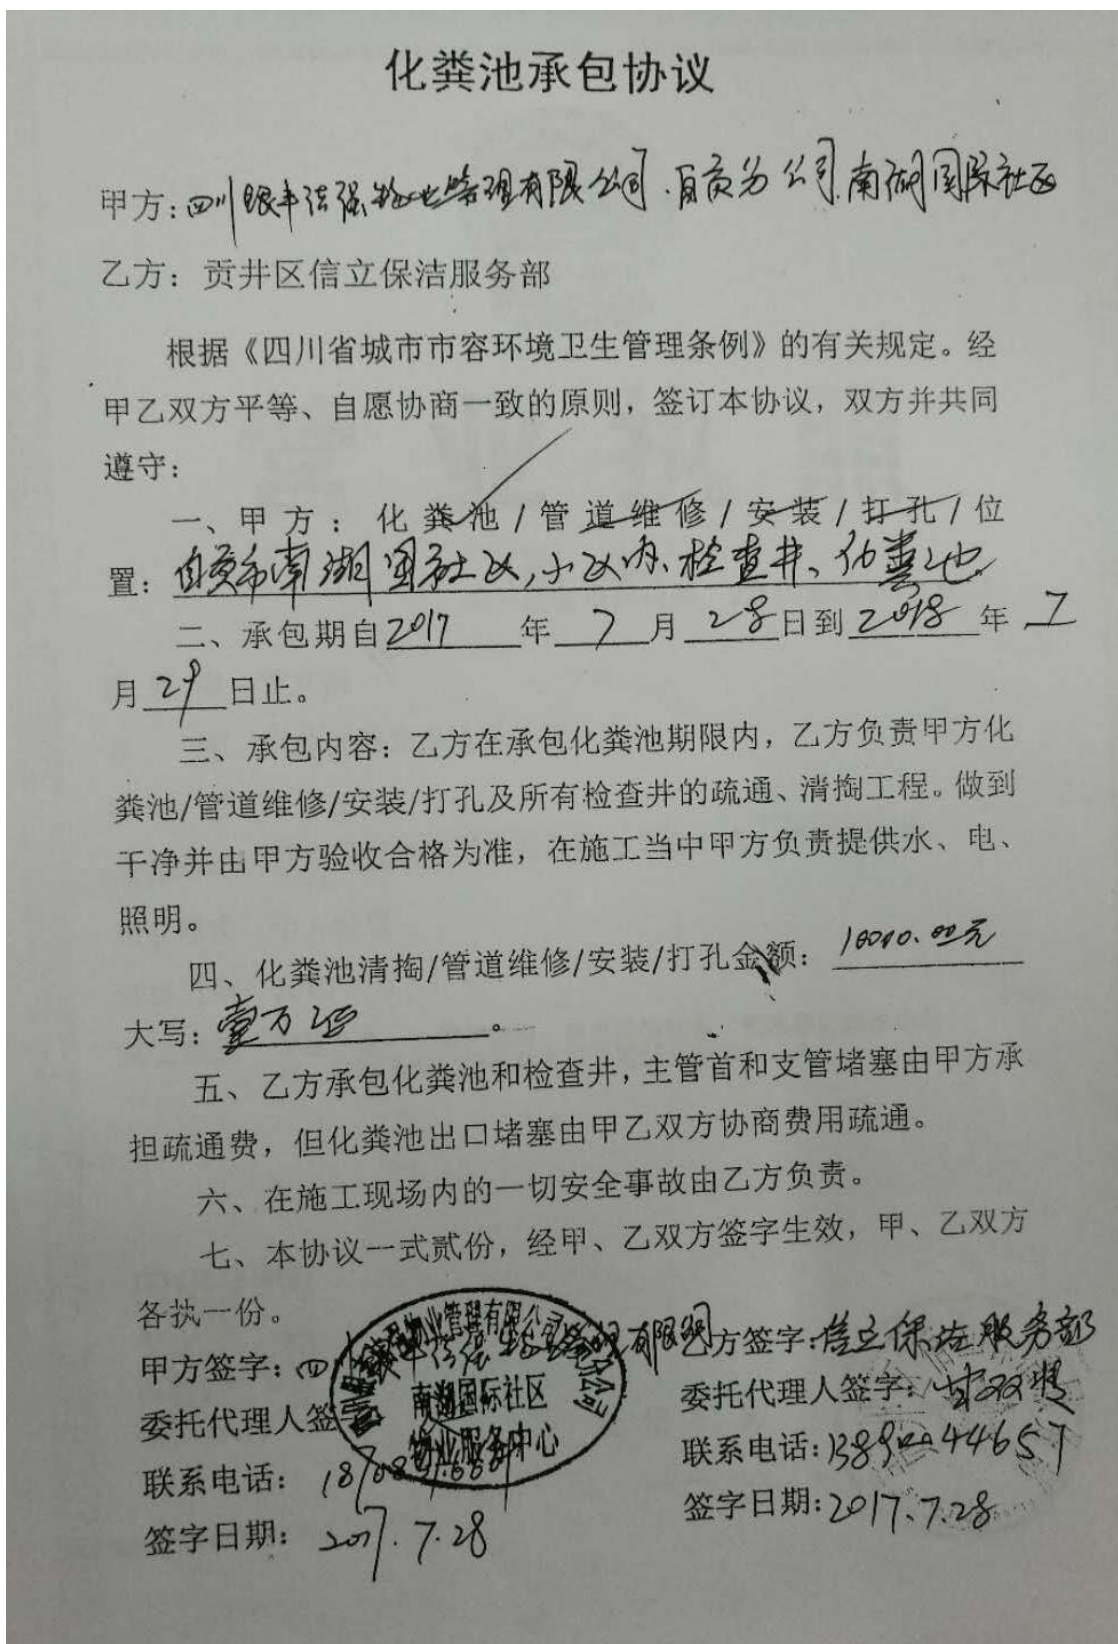 化粪池承包协议
甲方：四川银丰法强物业管理有限公司.自贡分公司.南湖国际社区
乙方：贡井区信立保洁服务部
根据《四川省城市市容环境卫生管理条例》的有关规定。经
甲乙双方平等、自愿协商一致的原则，签订本协议，双方并共同
遵守：
一、甲方：化粪池/管道维修/安装/打孔/位
置：自贡市南湖国际社区，小区内、检查井、化粪池
二、承包期自2017年7月28日到2018年7
月29日止。
三、承包内容：乙方在承包化粪池期限内，乙方负责甲方化
粪池/管道维修/安装/打孔及所有检查井的疏通、清掏工程。做到
干净并由甲方验收合格为准，在施工当中甲方负责提供水、电、
照明。
四、化粪池清掏/管道维修/安装/打孔金额：10000.00元
大写：壹万正。
五、乙方承包化粪池和检查井，主管首和支管堵塞由甲方承
担疏通费，但化粪池出口堵塞由甲乙双方协商费用疏通。
六、在施工现场内的一切安全事故由乙方负责。
七、本协议一式贰份，经甲、乙双方签字生效，甲、乙双方
各执一份。
甲方签字：四川 有限公司 乙方签字：信立保洁服务部
物业管理有限公司 分公司
南湖国际社区
物业服务中心
委托代理人签字 委托代理人签字：甘双
联系电话： 联系电话：
签字日期：2017.7.28 签字日期：2017.7.28